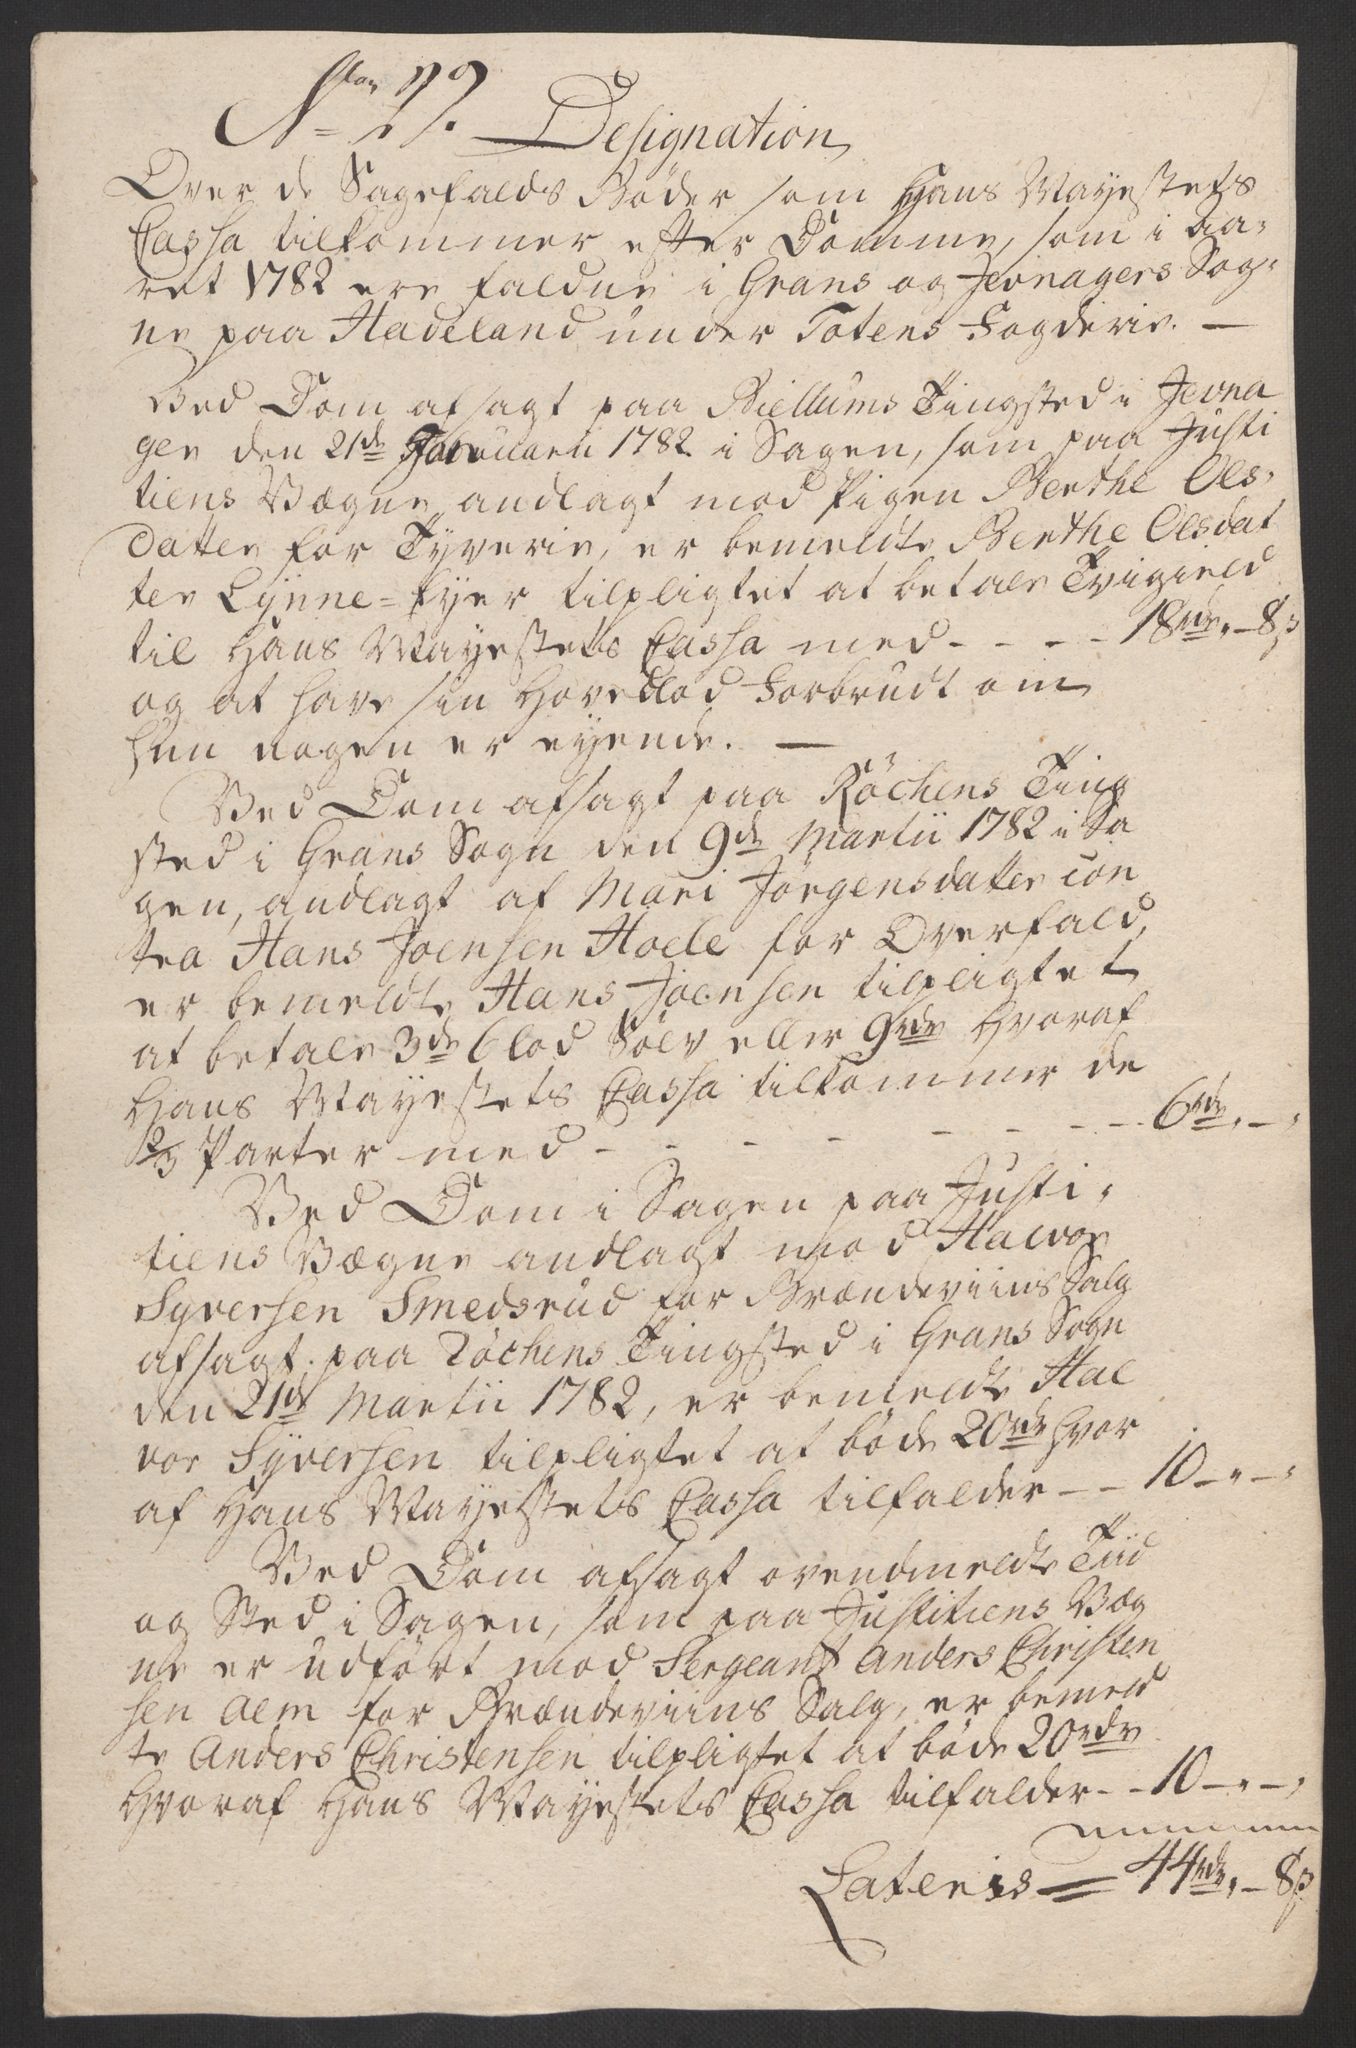 No 27. Designation
Over de Sagefalds Bøder som Hans Mayestets
Cassa tilkommer efter Domme, som i Aa-
ret 1782 ere faldne i Grans og Jevnagers Sog-
ne paa Hadeland under Totens Fogderie. —
Ved Dom afsagt paa Biellums Tingsted i Jevna
ger den 21de Februarii 1782 i Sagen, som paa Justi
tiens Vægne andlagt mod Pigen Berthe Ols-
datter for Tyverie, er bemeldte Berthe Olsdat
ter Lynne-Eyer tilpligtet at betale Tvigield
til Hans Mayestets Cassa med - - - - 18rdr. - 8s
og at have sin Hovedlod Forbrudt om
hun nogen er eyende. —
Ved Dom afsagt paa Röchens Ting
sted i Grans Sogn den 9de Martii 1782 i Sa
gen, andlagt af Mari Jörgensdatter con
tra Hans Joensen Hoele for Overfald,
er bemeldte Hans Joensen tilpligtet
at betale 3de 6 lod Sølv eller 9rdr hvoraf
Hans Mayestets Cassa tilkommer de
2/3 Parter med - - - - - - - - 6rdr. - "
Ved Dom i Sagen paa Justi-
tiens Vægne andlagt mod Halvor
Syversen Smedsrud for Brændeviins Salg
afsagt paa Röchens Tingsted i Grans Sogn
den 21de Martii 1782, er bemeldte Hal
vor Syversen tilpligtet at bøde 20rdr hvor
af Hans Mayestets Cassa tilfalder - - 10 - " - "
Ved Dom afsagt ovenmeldte Tiid
og Sted i Sagen, som paa Justitiens Væg
ne er udført mod Sergeant Anders Christen
sen Alm for Brændeviins Salg, er bemeld
te Anders Christensen tilpligtet at bøde 20rdr
hvoraf Hans Mayestets Cassa tilfalder - - 10 - " - "
Lateris = 44rdr. - 8s